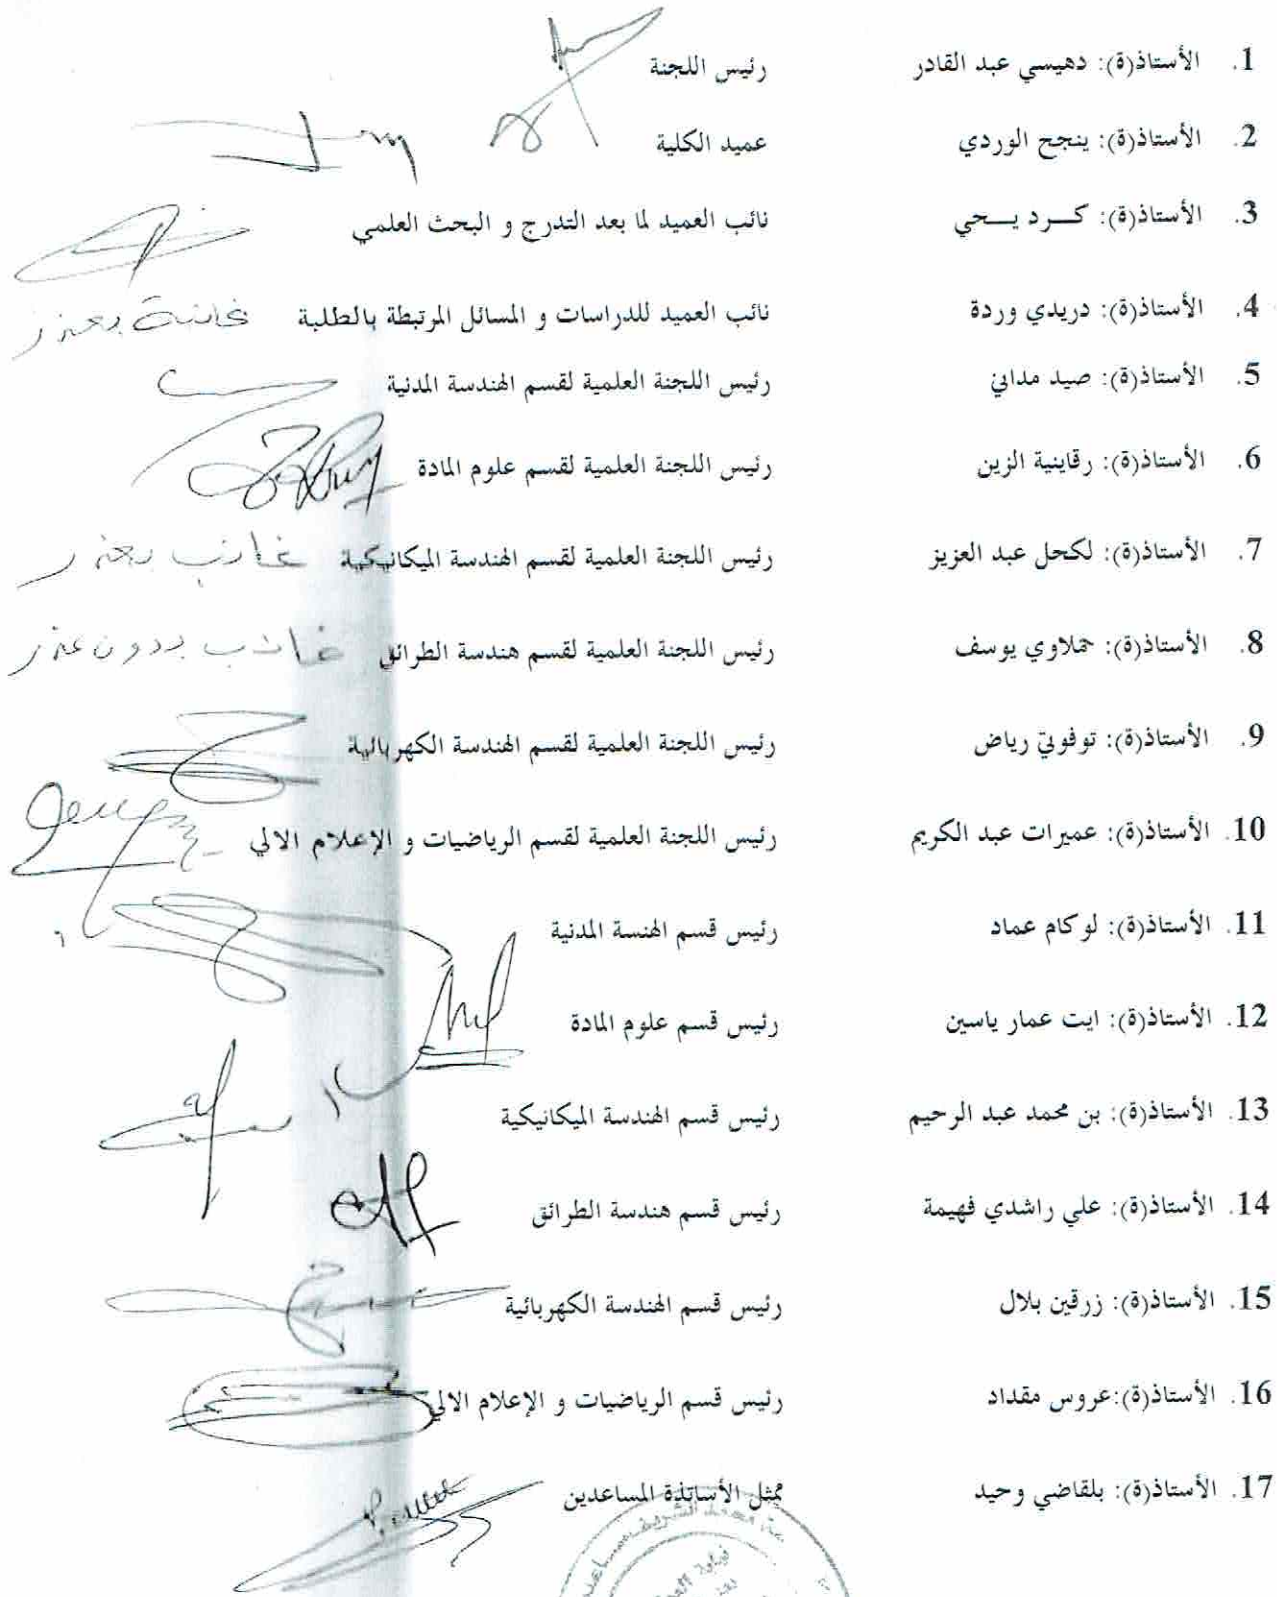 1. الأستاذ(ة): دهيسي عبد القادر رئيس اللجنة
2. الأستاذ(ة): ينجح الوردي عميد الكلية
3. الأستاذ(ة): كـــرد يـــحي نائب العميد لما بعد التدرج و البحث العلمي
4. الأستاذ(ة): دريدي وردة نائب العميد للدراسات و المسائل المرتبطة بالطلبة غائبة بعذر
5. الأستاذ(ة): صيد مداني رئيس اللجنة العلمية لقسم الهندسة المدنية
6. الأستاذ(ة): رقاينية الزين رئيس اللجنة العلمية لقسم علوم المادة
7. الأستاذ(ة): لكحل عبد العزيز رئيس اللجنة العلمية لقسم الهندسة الميكانيكية غائب بعذر
8. الأستاذ(ة): حملاوي يوسف رئيس اللجنة العلمية لقسم هندسة الطرائق غائب بدون عذر
9. الأستاذ(ة): توفوتي رياض رئيس اللجنة العلمية لقسم الهندسة الكهربائية
10. الأستاذ(ة): عميرات عبد الكريم رئيس اللجنة العلمية لقسم الرياضيات و الإعلام الالي
11. الأستاذ(ة): لوكام عماد رئيس قسم الهنسة المدنية
12. الأستاذ(ة): ايت عمار ياسين رئيس قسم علوم المادة
13. الأستاذ(ة): بن محمد عبد الرحيم رئيس قسم الهندسة الميكانيكية
14. الأستاذ(ة): علي راشدي فهيمة رئيس قسم هندسة الطرائق
15. الأستاذ(ة): زرقين بلال رئيس قسم الهندسة الكهربائية
16. الأستاذ(ة):عروس مقداد رئيس قسم الرياضيات و الإعلام الالي
17. الأستاذ(ة): بلقاضي وحيد ممثل الأساتذة المساعدين
محمد الشريف